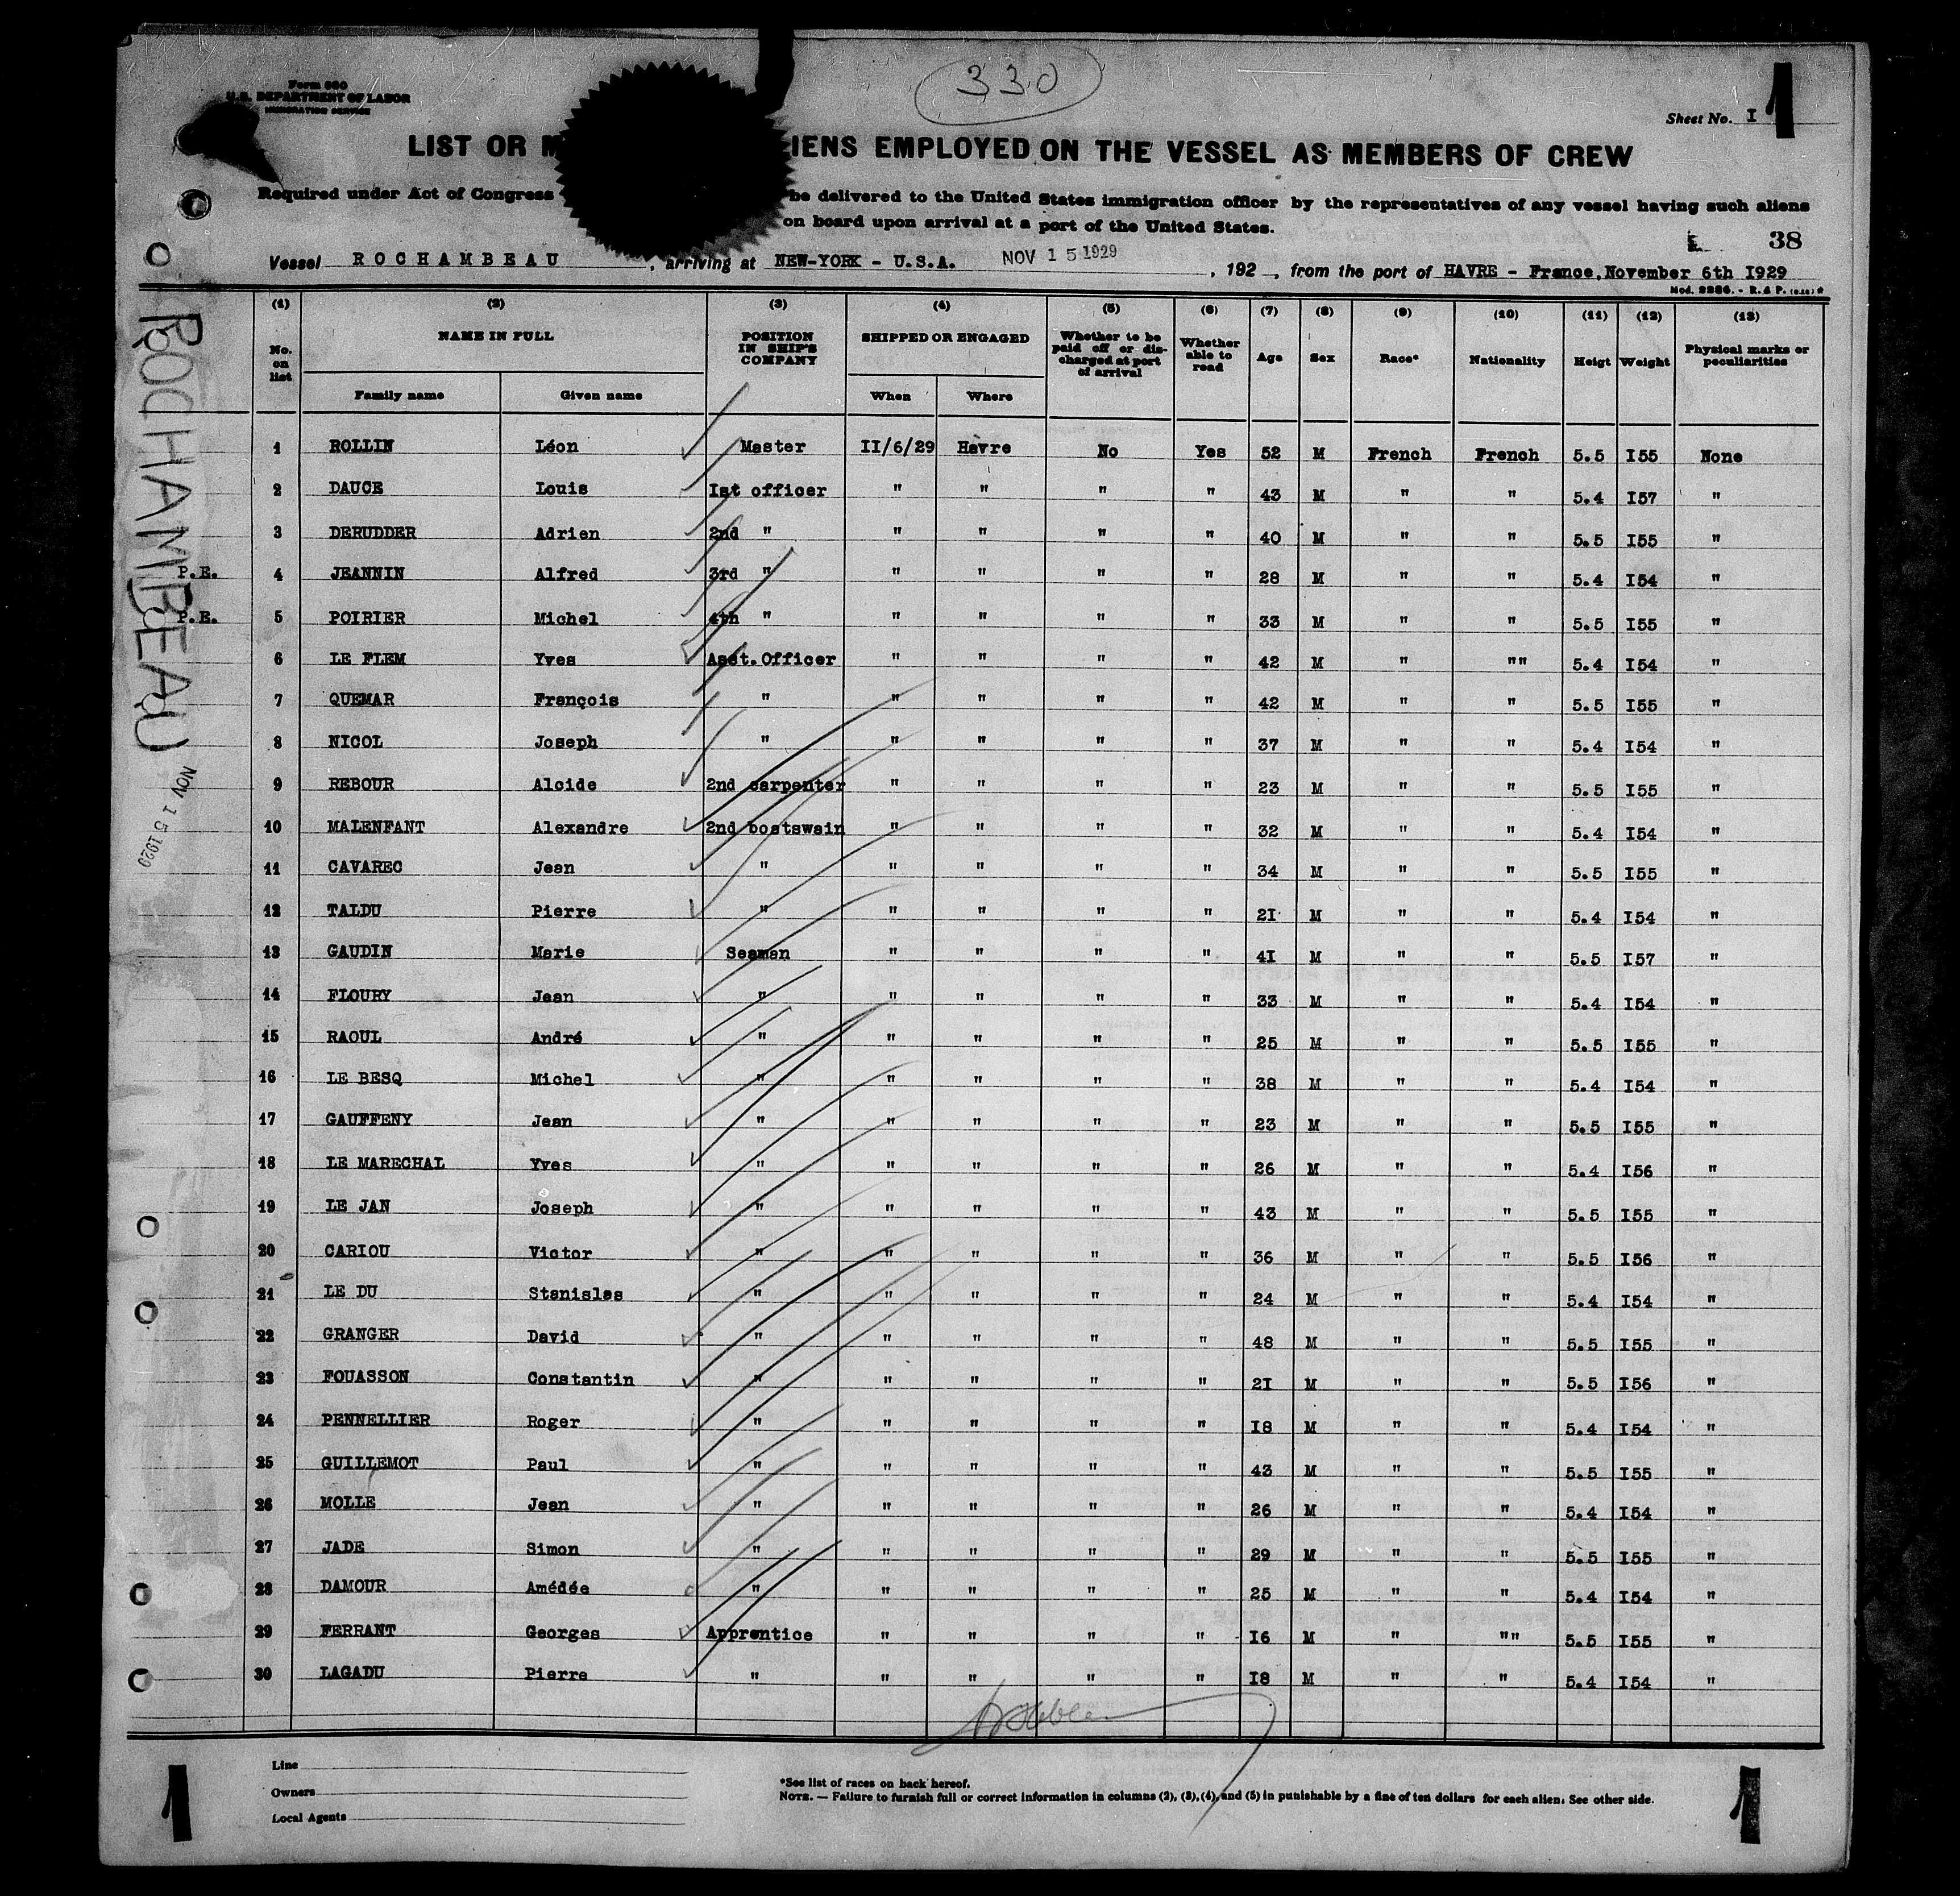 330
Form 680
U.S. DEPARTMENT OF LABOR
IMMIGRATION SERVICE
Sheet No. I 1
LIST OR M IENS EMPLOYED ON THE VESSEL AS MEMBERS OF CREW
Required under Act of Congress be delivered to the United States immigration officer by the representatives of any vessel having such aliens
on board upon arrival at a port of the United States.
38
Vessel ROCHAMBEAU, arriving at NEW-YORK - U.S.A. NOV 15 1929, 192 , from the port of HAVRE - France, November 6th I929
Mod. 2286. - R. & P.
(1) (2) (3) (4) (5) (6) (7) (8) (9) (10) (11) (12) (13)
No. on list NAME IN FULL POSITION IN SHIP'S COMPANY SHIPPED OR ENGAGED Whether to be paid off or discharged at port of arrival Whether able to read Age Sex Race* Nationality Heigt Weight Physical marks or peculiarities
Family name Given name When Where
1 ROLLIN Léon Master II/6/29 Havre No Yes 52 M French French 5.5 I55 None
2 DAUCE Louis Ist officer " " " " 43 M " " 5.4 I57 "
3 DERUDDER Adrien 2nd " " " " " 40 M " " 5.5 I55 "
P.E. 4 JEANNIN Alfred 3rd " " " " " 28 M " " 5.4 I54 "
P.E. 5 POIRIER Michel 4th " " " " " 33 M " " 5.5 I55 "
6 LE FLEM Yves Asst. Officer " " " " 42 M " "" 5.4 I54 "
7 QUEMAR François " " " " " 42 M " " 5.5 I55 "
8 NICOL Joseph " " " " " 37 M " " 5.4 I54 "
9 REBOUR Alcide 2nd carpenter " " " " 23 M " " 5.5 I55 "
10 MALENFANT Alexandre 2nd boatswain " " " " 32 M " " 5.4 I54 "
11 CAVAREC Jean " " " " " 34 M " " 5.5 I55 "
12 TALDU Pierre " " " " " 2I M " " 5.4 I54 "
13 GAUDIN Marie Seaman " " " " 4I M " " 5.5 I57 "
14 FLOURY Jean " " " " " 33 M " " 5.4 I54 "
15 RAOUL André " " " " " 25 M " " 5.5 I55 "
16 LE BESQ Michel " " " " " 38 M " " 5.4 I54 "
17 GAUFFENY Jean " " " " " 23 M " " 5.5 I55 "
18 LE MARECHAL Yves " " " " " 26 M " " 5.4 I56 "
19 LE JAN Joseph " " " " " 43 M " " 5.5 I55 "
20 CARIOU Victor " " " " " 36 M " " 5.5 I56 "
21 LE DU Stanislas " " " " " 24 M " " 5.4 I54 "
22 GRANGER David " " " " " 48 M " " 5.5 I55 "
23 FOUASSON Constantin " " " " " 2I M " " 5.5 I56 "
24 PENNELLIER Roger " " " " " I8 M " " 5.4 I54 "
25 GUILLEMOT Paul " " " " " 43 M " " 5.5 I55 "
26 MOLLE Jean " " " " " 26 M " " 5.4 I54 "
27 JADE Simon " " " " " 29 M " " 5.5 I55 "
28 DAMOUR Amédée " " " " " 25 M " " 5.4 I54 "
29 FERRANT Georges Apprentice " " " " I6 M " "" 5.5 I55 "
30 LAGADU Pierre " " " " " I8 M " " 5.4 I54 "
ROCHAMBEAU
NOV 15 1929
Line
Owners
Local Agents
*See list of races on back hereof.
NOTE. — Failure to furnish full or correct information in columns (2), (3), (4), and (5) in punishable by a fine of ten dollars for each alien. See other side.
1
1